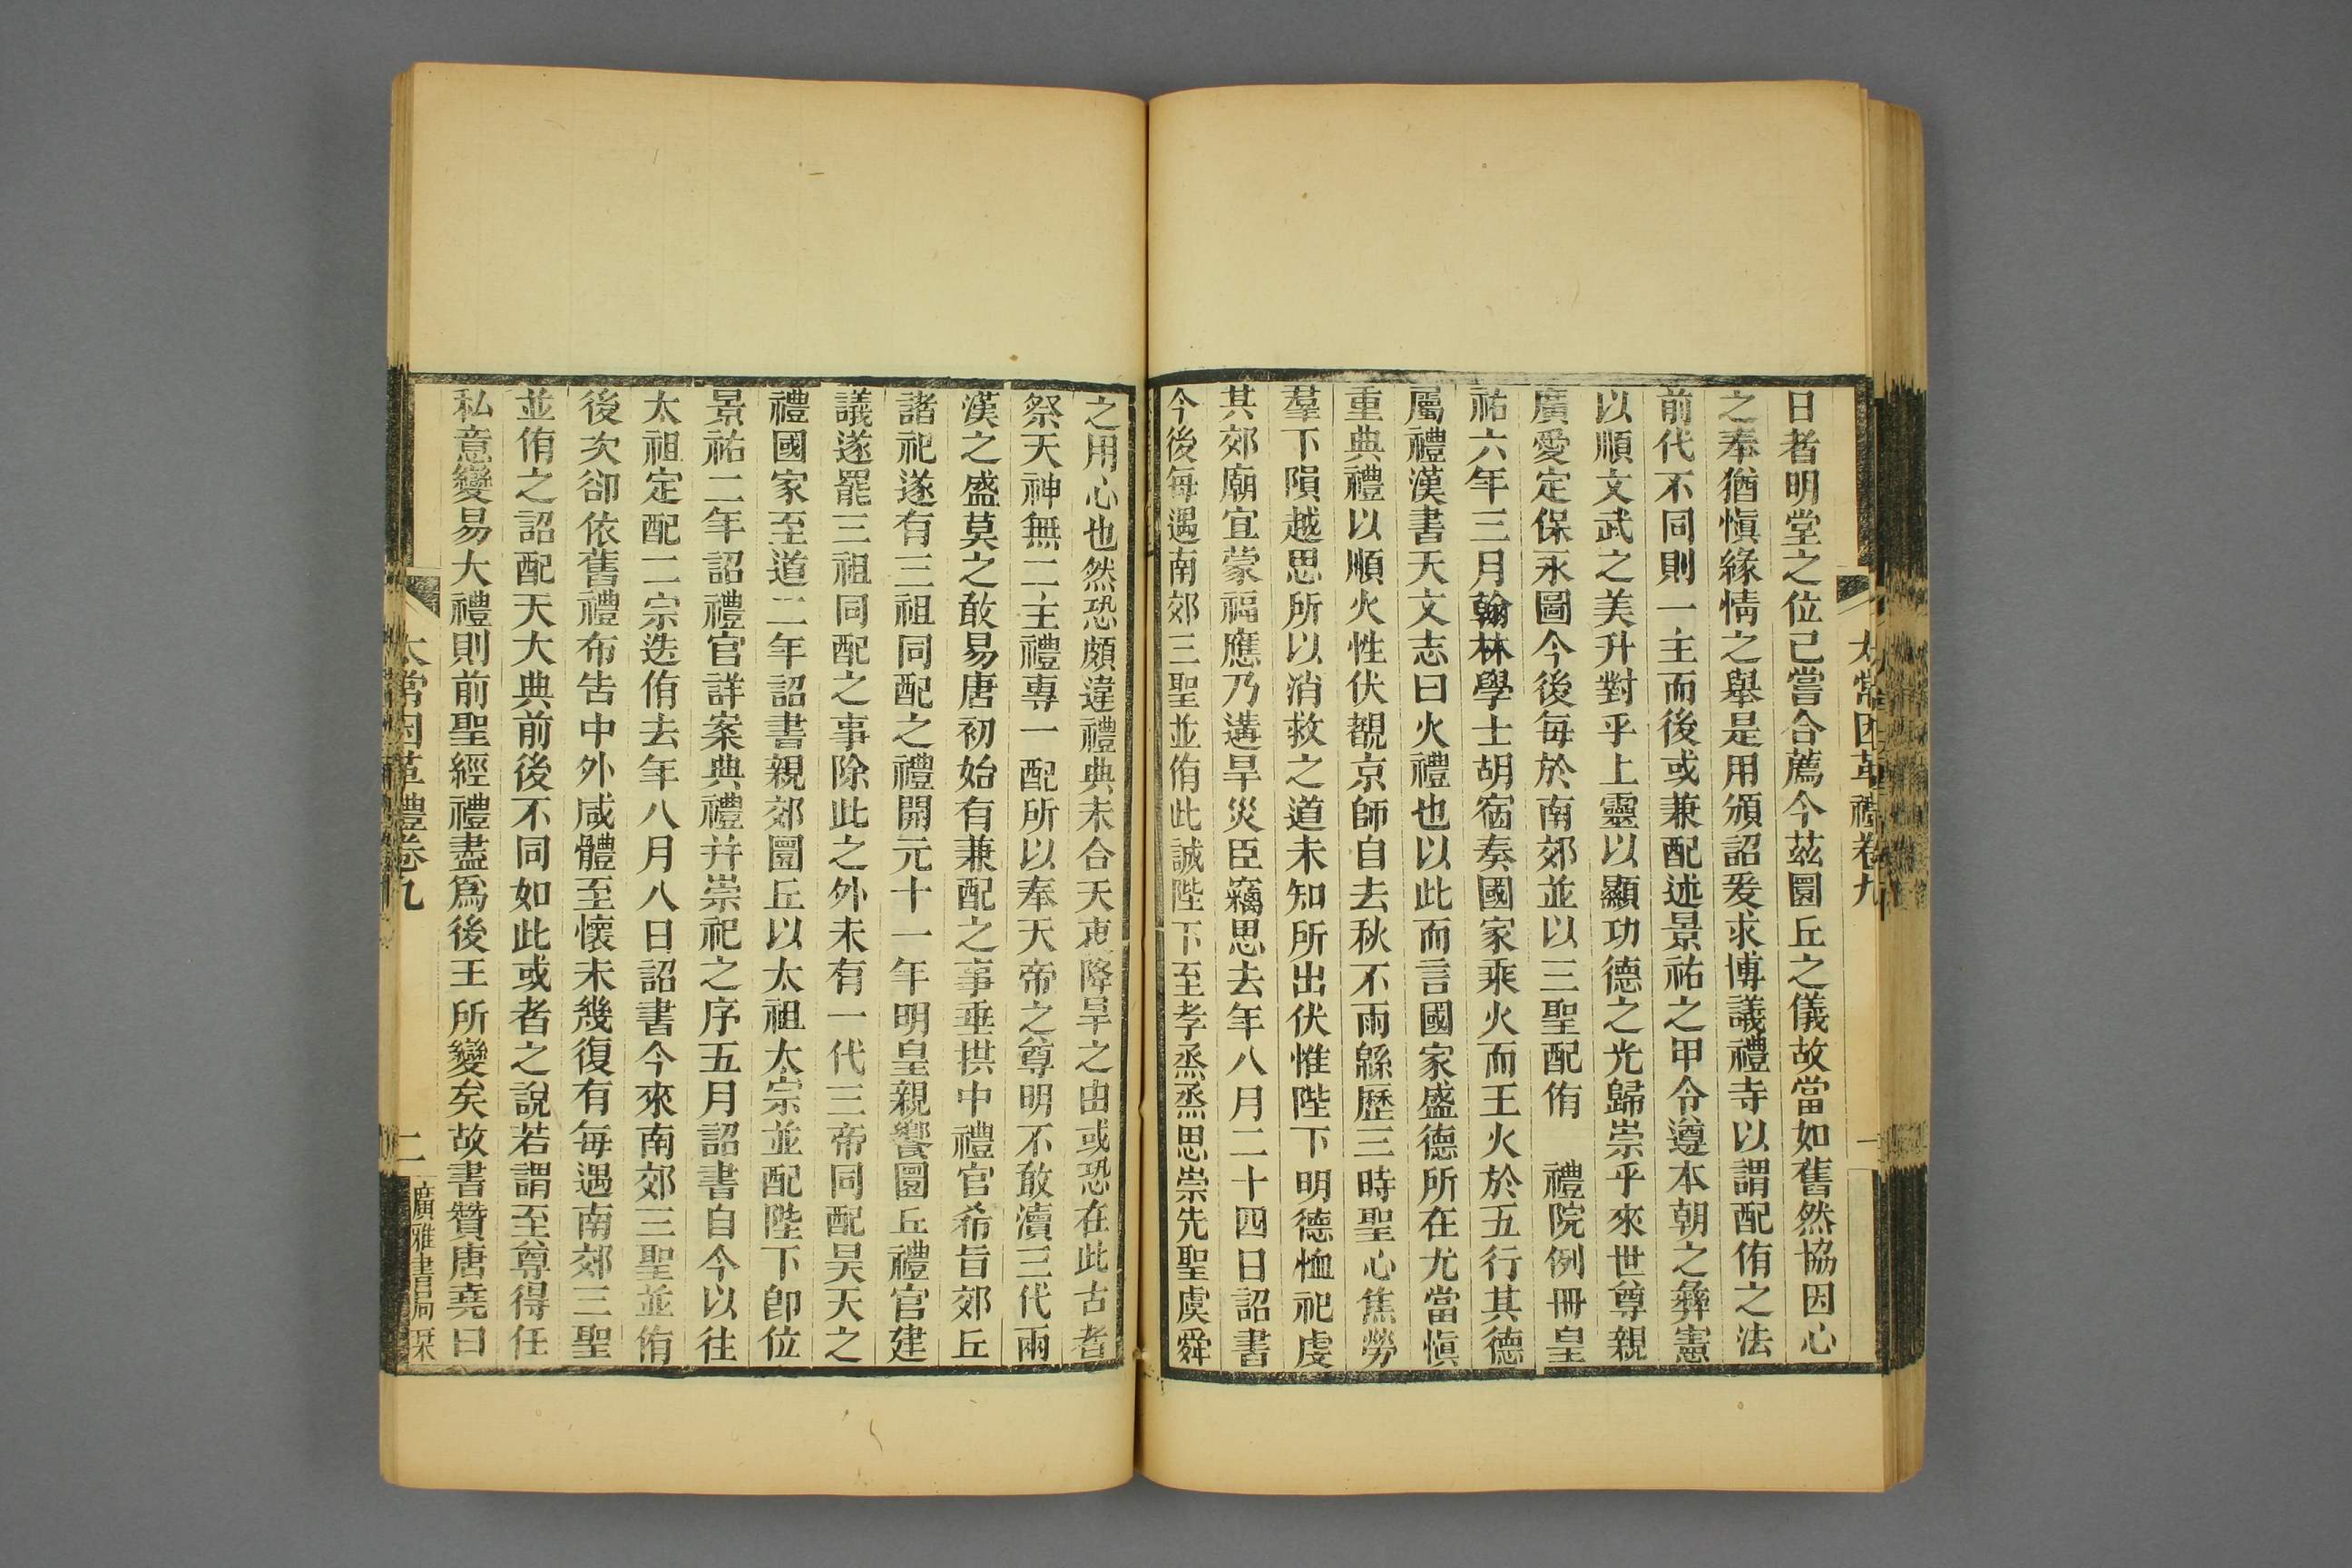 太常因革禮卷九
一
日者明堂之位已嘗合薦今茲圜丘之儀故當如舊然協因心
之奉猶愼緣情之舉是用頒詔爰求博議禮寺以謂配侑之法
前代不同則一主而後或兼配述景祐之甲令遵本朝之彝憲
以順文武之美升對乎上靈以顯功德之光歸崇乎來世尊親
廣愛定保永圖今後每於南郊並以三聖配侑 禮院例冊皇
祐六年三月翰林學士胡宿奏國家乘火而王火於五行其德
屬禮漢書天文志曰火禮也以此而言國家盛德所在尤當愼
重典禮以順火性伏覩京師自去秋不雨緜歷三時聖心焦勞
羣下隕越思所以消救之道未知所出伏惟陛下明德恤祀虔
其郊廟宜蒙福應乃遘旱災臣竊思去年八月二十四日詔書
今後每遇南郊三聖並侑此誠陛下至孝烝烝思崇先聖虞舜
之用心也然恐頗違禮典未合天衷降旱之由或恐在此古者
祭天神無二主禮專一配所以奉天帝之尊明不敢瀆三代兩
漢之盛莫之敢易唐初始有兼配之事垂拱中禮官希旨郊丘
諸祀遂有三祖同配之禮開元十一年明皇親饗圜丘禮官建
議遂罷三祖同配之事除此之外未有一代三帝同配昊天之
禮國家至道二年詔書親郊圜丘以太祖太宗並配陛下卽位
景祐二年詔禮官詳案典禮幷崇祀之序五月詔書自今以往
太祖定配二宗迭侑去年八月八日詔書今來南郊三聖並侑
後次卻依舊禮布告中外咸體至懷未幾復有每遇南郊三聖
並侑之詔配天大典前後不同如此或者之說若謂至尊得任
私意變易大禮則前聖經禮盡爲後王所變矣故書贊唐堯曰
太常因革禮卷九
二
廣雅書局栞